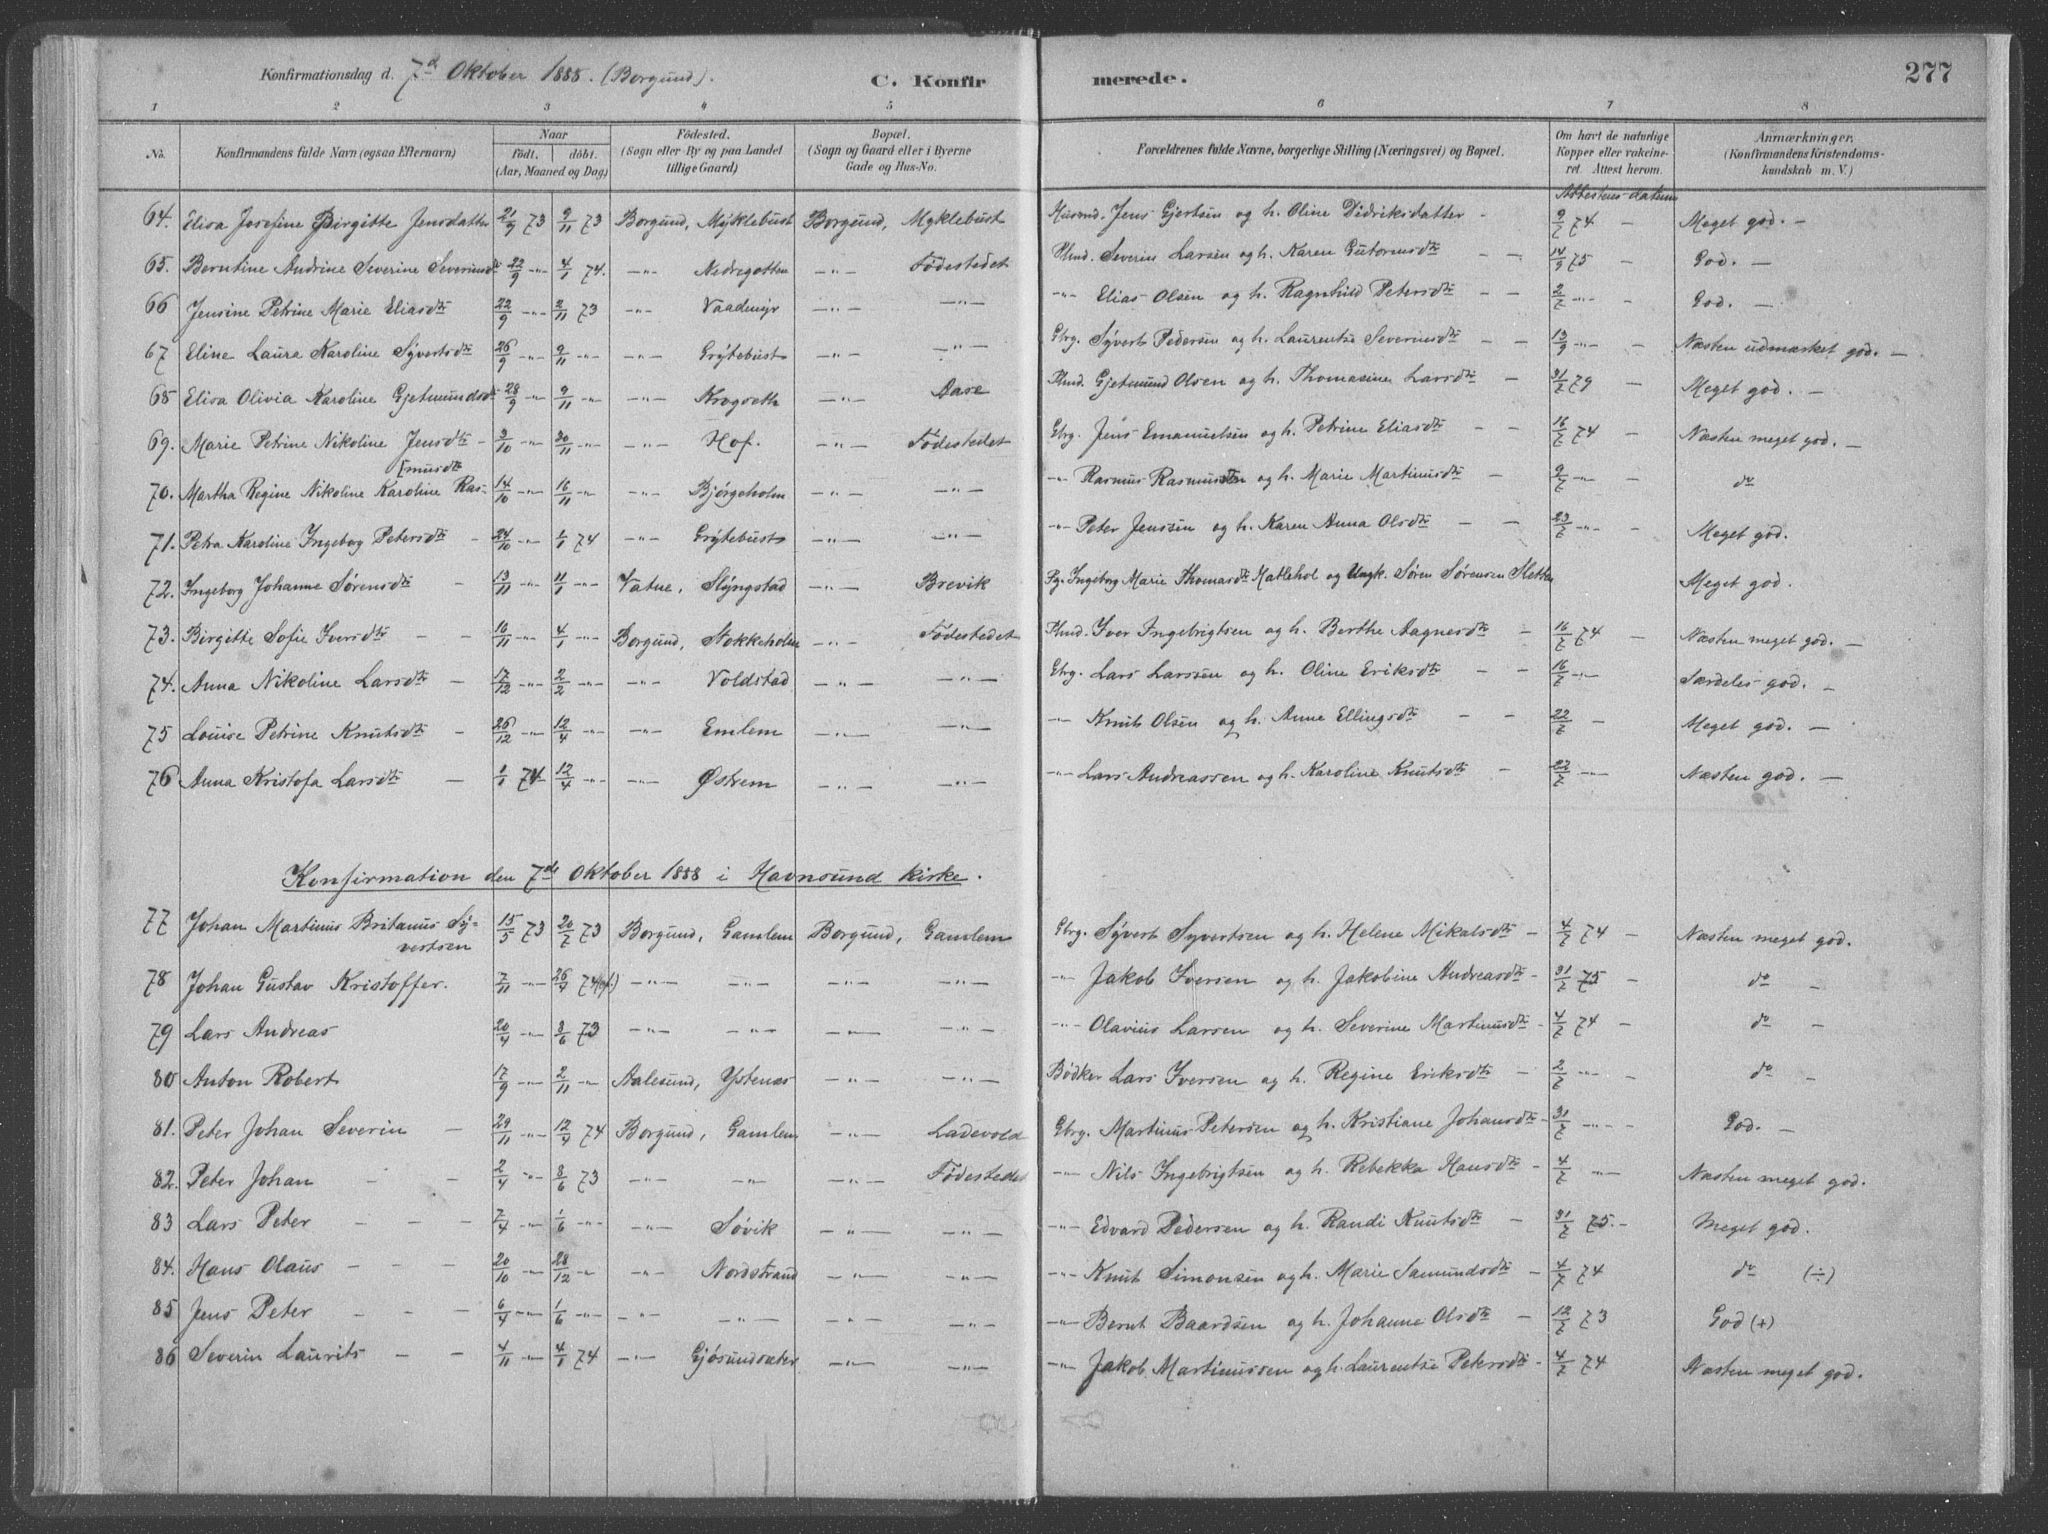 Konfirmationsdag d. 7d Oktober 1888. (Borgund). C. Konfirmerede. 277
1 2 3 4 5 6 7 8
No. Konfirmandens fulde Navn (ogsaa Efternavn) Naar født. døbt. (Aar, Maaned og Dag) Fødested. (Sogn eller By og paa Landet tillige Gaard) Bopæl. (Sogn og Gaard eller i Byerne Gade og Hus-No. Forældrenes fulde Navne, borgerlige Stilling (Næringsvei) og Bopæl. Om havt de naturlige Kopper eller vakcineret. Attest herom. Anmærkninger. (Konfirmandens Kristendomskundskab m. V.)
Attestens datum
64. Elisa Josefine Birgitte Jensdatter 21/9 73 9/11 73 Borgund, Myklebust Borgund, Myklebust Husmd. Jens Gjertsen og h. Oline Didriksdatter - 9/7 74 - Meget god. -
65. Berntine Andrine Severine Severinsdtr 22/9 -"- 4/1 74. -"- Nedregotten -"- Fødestedet Plmd. Severin Larsen og h. Karen Gutormsdtr - - 14/9 75 - God. -
66 Jensine Petrine Marie Eliasdtr 22/9 -"- 2/11 73 -"- Vaadmyr -"- -"- -"- Elias Olsen og h. Ragnhild Petersdtr - - 2/7 -"- - God. -
67 Eline Laura Karoline Syvertsdtr 26/9 -"- 9/11 -"- -"- Grytebust -"- -"- Gbrg. Syvert Pedersen og h. Laurentse Severinsdtr - - 13/9 -"- - Næsten udmærket god. -
68 Elisa Olivia Karoline Gjetmundsdtr 28/9 -"- 9/11 -"- -"- Krogseth -"- Aase Plmd. Gjetmund Olsen og h. Thomasine Larsdtr - 31/7 79 - Meget god. -
69. Marie Petrine Nikoline Jensdtr - 3/10 -"- 30/11 -"- -"- Hof. -"- Fødestedet Gbrg. Jens Emanuelsen og h. Petrine Eliasdtr - - 16/7 74 - Næsten meget god. -
[musdtr
70. Martha Regine Nikoline Karoline Ras- 14/10 -"- 16/11 -"- -"- Bjørgeholm -"- -"- -"- Rasmus Rasmussen og h. Marie Martinusdtr - 9/7 -"- - do
71. Petra Karoline Ingeborg Petersdtr - 24/10 -"- 1/1 74 -"- Grytebust -"- -"- -"- Peter Jenssen og h. Karen Anna Olsdtr - - 23/7 -"- - Meget god.
72. Ingeborg Johanne Sørensdtr - 13/11 -"- 11/1 -"- Vatne, Slyngstad -"- Brevik Pg. Ingeborg Marie Thomasdtr Matlehol og Ungk. Søren Sørensen Slette Meget god.
73. Birgitte Sofie Iversdtr - - 16/11 -"- 4/1 -"- Borgund, Stokkeholm -"- Fødestedet Plmd. Iver Ingebrigtsen og h. Berthe Aagnesdtr - 16/7 74 - Næsten meget god. -
74. Anna Nikoline Larsdtr - 17/12 -"- 2/2 -"- -"- Voldstad -"- -"- Gbrg. Lars Larssen og h. Oline Eriksdtr - - 16/7 -"- Særdeles god. -
75 Louise Petrine Knutsdtr - 26/12 -"- 12/4 -"- -"- Emlem -"- -"- -"- Knut Olsen og h. Anne Ellingsdtr - - 22/7 - Meget god. -
76 Anna Kristofa Larsdtr - 1/1 74 12/4 -"- -"- Østrem -"- -"- -"- Lars Andreassen og h. Karoline Knutsdtr - 22/7 -"- Næsten god. -
Konfirmation den 7de Oktober 1888 i Havnsund kirke.
77 Johan Martinus Britanus Sy- 15/5 73 20/7 73 Borgund, Gamlem Borgund, Gamlem Gbrg. Syvert Syvertsen og h. Helene Mikalsdtr - 4/7 74 - Næsten meget god.
vertsen
78 Johan Gustav Kristoffer. 7/11 -"- 26/4 74 (of.) -"- -"- -"- -"- -"- Jakob Iversen og h. Jakobine Andreasdtr - 31/7 75 - do -
79 Lars Andreas 20/4 -"- 3/6 73 -"- -"- -"- -"- -"- Olavius Larsen og h. Severine Martinusdtr - 4/7 74 - do -
80 Anton Robert 17/9 -"- 2/11 -"- Aalesund, Ystenæs -"- -"- Bødker Lars Iversen og h. Regine Eriksdtr - 2/7 -"- - do -
81. Peter Johan Severin - 29/11 -"- 12/4 74 Borgund, Gamlem -"- Ladevold Gbrg. Martinus Petersen og h. Kristiane Johansdtr - 31/7 -"- - God. -
82. Peter Johan - - 2/4 -"- 8/6 73 -"- -"- -"- Fødestedet -"- Nils Ingebrigtsen og h. Rebekka Hansdtr - 4/7 -"- Næsten meget god.
83 Lars Peter - - - 7/4 -"- 1/6 -"- -"- Søvik -"- -"- -"- Edvard Pedersen og h. Randi Knutsdtr - 31/7 75. - Meget god.
84. Hans Olaus - - - 20/10 -"- 28/12 -"- -"- Nordstrand -"- -"- -"- Knut Simonsen og h. Marie Samundsdtr - 4/7 74 do (÷)
85 Jens Peter - - - 6/4 -"- 1/6 -"- -"- -"- -"- -"- -"- Bernt Baardsen og h. Johanne Olsdtr - 12/7 73 God (+)
86 Severin Laurits - - 4/11 -"- 4/1 74 -"- Gjøsundsæter -"- -"- -"- Jakob Martinussen og h. Laurentse Petersdtr - 4/7 74 Næsten meget god.